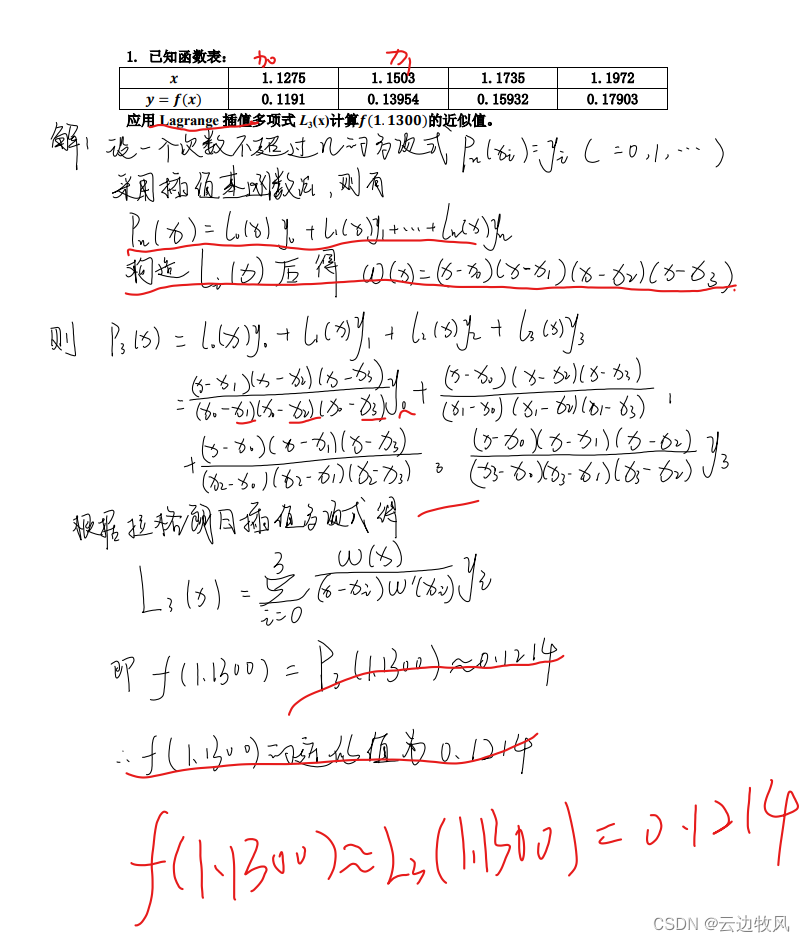 1. 已知函数表:
x₀ x₁
x 1.1275 1.1503 1.1735 1.1972
y = f(x) 0.1191 0.13954 0.15932 0.17903
应用 Lagrange 插值多项式 L₃(x)计算f(1.1300)的近似值。
解: 设一个次数不超过n的多项式 Pₙ(xᵢ)=yᵢ ( =0,1,…)
采用插值基函数法,则有
Pₙ(x)=l₀(x)y₀+l₁(x)y₁+…+lₙ(x)yₙ
构造 Lᵢ(x) 后得 ω(x)=(x-x₀)(x-x₁)(x-x₂)(x-x₃).
则 P₃(x) = l₀(x)y₀ + l₁(x)y₁ + l₂(x)y₂ + l₃(x)y₃
= (x-x₁)(x-x₂)(x-x₃) / (x₀-x₁)(x₀-x₂)(x₀-x₃) y₀ + (x-x₀)(x-x₂)(x-x₃) / (x₁-x₀)(x₁-x₂)(x₁-x₃)
+ (x-x₀)(x-x₁)(x-x₃) / (x₂-x₀)(x₂-x₁)(x₂-x₃) (x-x₀)(x-x₁)(x-x₂) / (x₃-x₀)(x₃-x₁)(x₃-x₂) y₃
根据拉格朗日插值多项式得
L₃(x) = ∑ᵢ₌₀³ ω(x) / (x-xᵢ)ω'(xᵢ) yᵢ
即 f(1.1300) = P₃(1.1300)≈0.1214
∴ f(1.1300)的近似值为 0.1214
f(1.1300)≈L₃(1.1300)=0.1214
CSDN @云边牧风